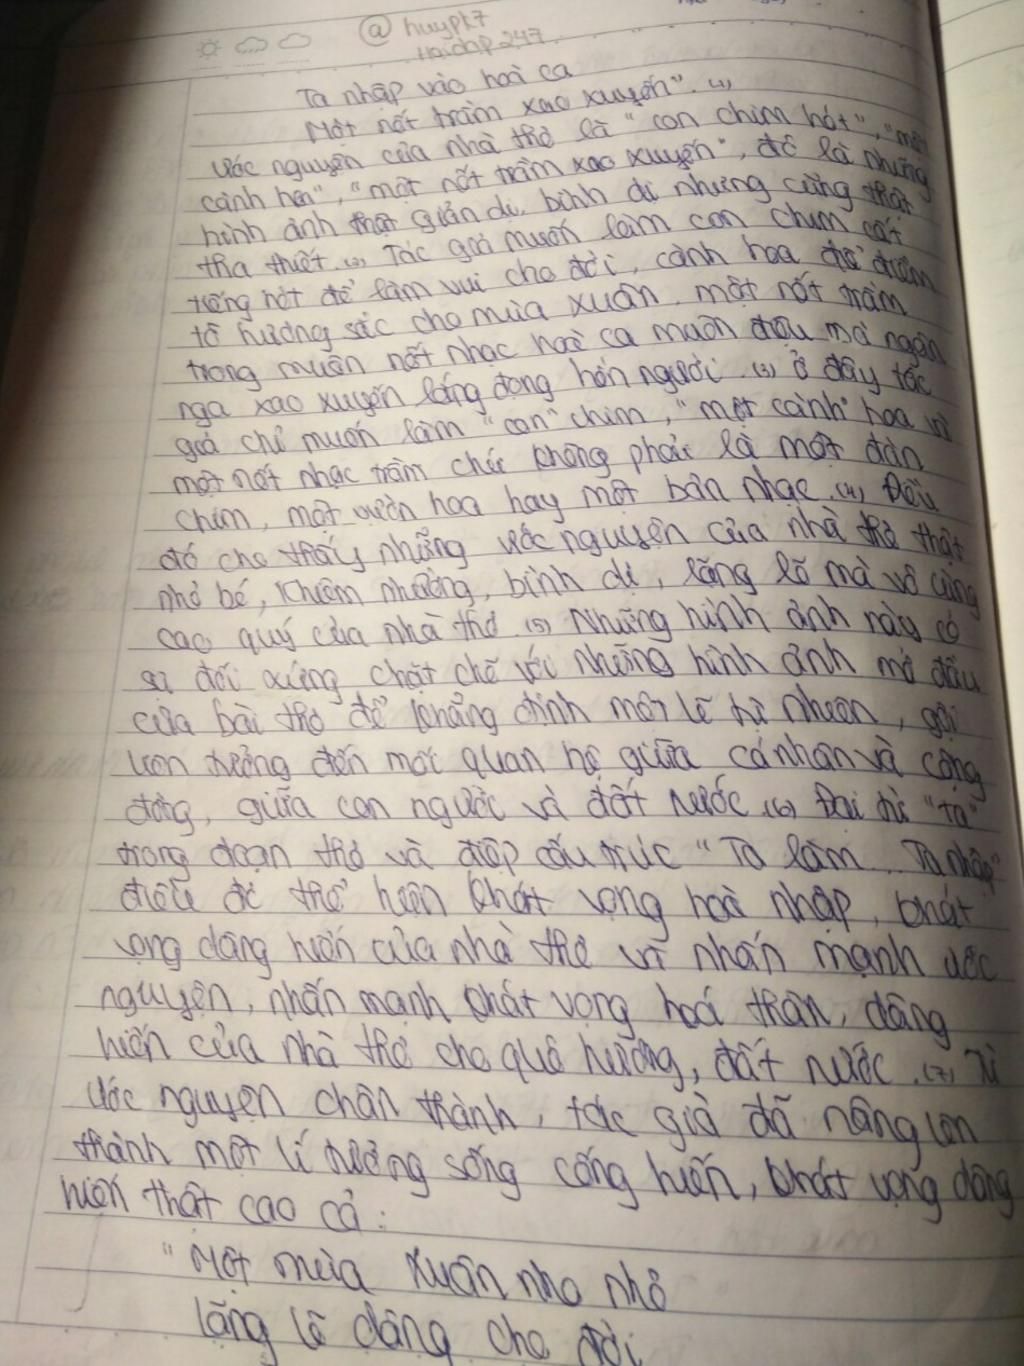 @ huypk7
Hoidap247
Ta nhập vào hoà ca
Một nốt trầm xao xuyến". (1)
Ước nguyện của nhà thơ là "con chim hót", "một
cành hoa", "một nốt trầm xao xuyến", đó là những
hình ảnh thật giản dị, bình dị nhưng cũng thật
tha thiết. (2) Tác giả muốn làm con chim cất
tiếng hót để làm vui cho đời, cành hoa để điểm
tô hương sắc cho mùa xuân, một nốt trầm
trong muôn nốt nhạc hoà ca muôn điệu mà ngân
nga xao xuyến lắng đọng hồn người. (3) Ở đây tác
giả chỉ muốn làm "con" chim, "một cành" hoa và
một nốt nhạc trầm chứ không phải là một đàn
chim, một vườn hoa hay một bản nhạc. (4) Điều
đó cho thấy những ước nguyện của nhà thơ thật
nhỏ bé, khiêm nhường, bình dị, lặng lẽ mà vô cùng
cao quý của nhà thơ. (5) Những hình ảnh này có
sự đối xứng chặt chẽ với những hình ảnh mở đầu
của bài thơ để khẳng định một lẽ tự nhiên, gợi
liên tưởng đến mối quan hệ giữa cá nhân và cộng
đồng, giữa con người và đất nước. (6) Đại từ "ta"
trong đoạn thơ và điệp cấu trúc "Ta làm, Ta nhập"
điều đó thể hiện khát vọng hoà nhập, khát
vọng dâng hiến của nhà thơ và nhấn mạnh ước
nguyện, nhấn mạnh khát vọng hoá thân, dâng
hiến của nhà thơ cho quê hương, đất nước. (7) Từ
ước nguyện chân thành, tác giả đã nâng lên
thành một lí tưởng sống cống hiến, khát vọng dâng
hiến thật cao cả:
"Một mùa xuân nho nhỏ
Lặng lẽ dâng cho đời